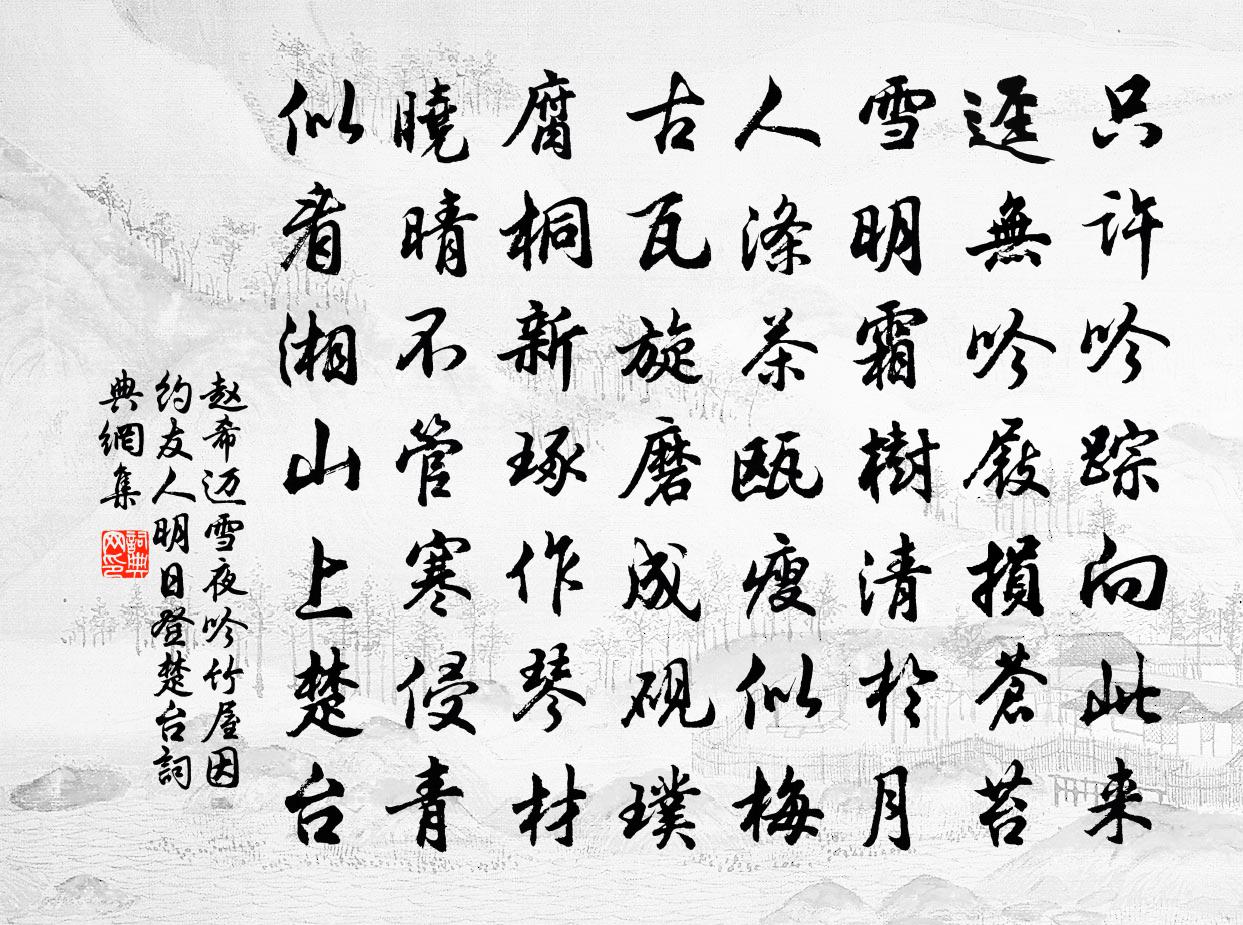 只許吟踪向此来
逕無吟屐損蒼苔
雪明霜樹清於月
人滌茶甌瘦似梅
古瓦旋磨成硯璞
腐桐新琢作琴材
曉晴不管寒侵青
似看湘山上楚台
赵希迈雪夜吟竹屋因
约友人明日登楚台詞
典網集
詞典
网印